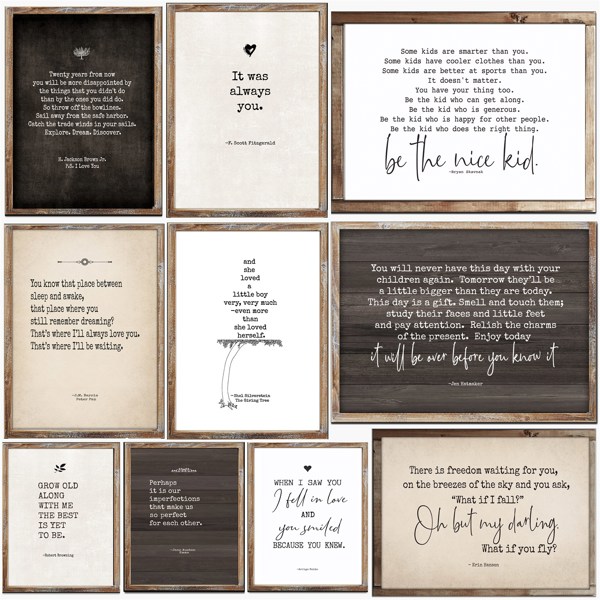 Twenty years from now
you will be more disappointed by
the things that you didn't do
than by the ones you did do.
So throw off the bowlines.
Sail away from the safe harbor.
Catch the trade winds in your sails.
Explore. Dream. Discover.
H. Jackson Brown Jr.
P.S. I Love You
It was
always
you.
-F. Scott Fitzgerald
Some kids are smarter than you.
Some kids have cooler clothes than you.
Some kids are better at sports than you.
It doesn't matter.
You have your thing too.
Be the kid who can get along.
Be the kid who is generous.
Be the kid who is happy for other people.
Be the kid who does the right thing.
be the nice kid.
-Bryan Skavnak
You know that place between
sleep and awake,
that place where you
still remember dreaming?
That's where I'll always love you.
That's where I'll be waiting.
-J.M. Barrie
Peter Pan
and
she
loved
a
little boy
very, very much
-even more
than
she loved
herself.
-Shel Silverstein
The Giving Tree
You will never have this day with your
children again. Tomorrow they'll be
a little bigger than they are today.
This day is a gift. Smell and touch them;
study their faces and little feet
and pay attention. Relish the charms
of the present. Enjoy today
it will be over before you know it
-Jen Hatmaker
GROW OLD
ALONG
WITH ME
THE BEST
IS YET
TO BE.
-Robert Browning
Perhaps
it is our
imperfections
that make us
so perfect
for each other.
WHEN I SAW YOU
I fell in love
AND
you smiled
BECAUSE YOU KNEW.
There is freedom waiting for you,
on the breezes of the sky and you ask,
"What if I fall?"
Oh but my darling,
What if you fly?
- Erin Hanson